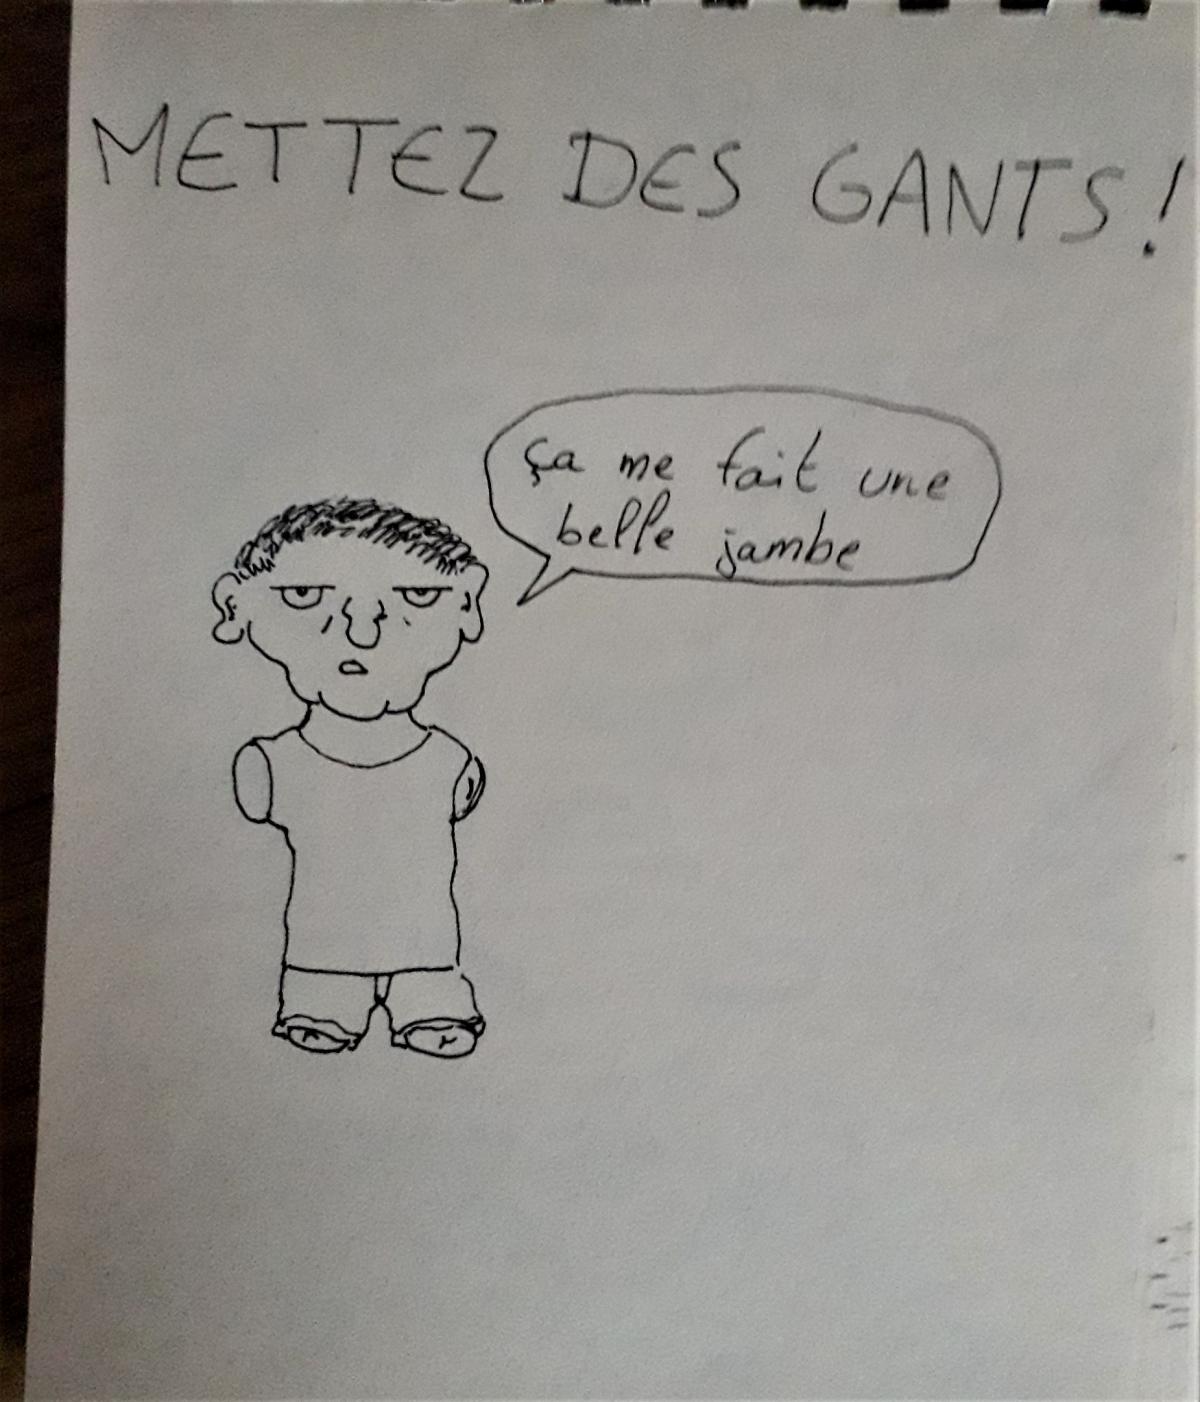 METTEZ DES GANTS !
ça me fait une
belle jambe